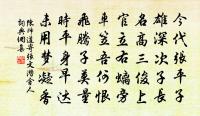 今代張平子
雄深次子長
名高三俊上
官立右螭旁
車笠吾何恨
飛騰子莫量
時平身早達
未用夢凝香
陳師道寄張文潛舍人
詞典網集